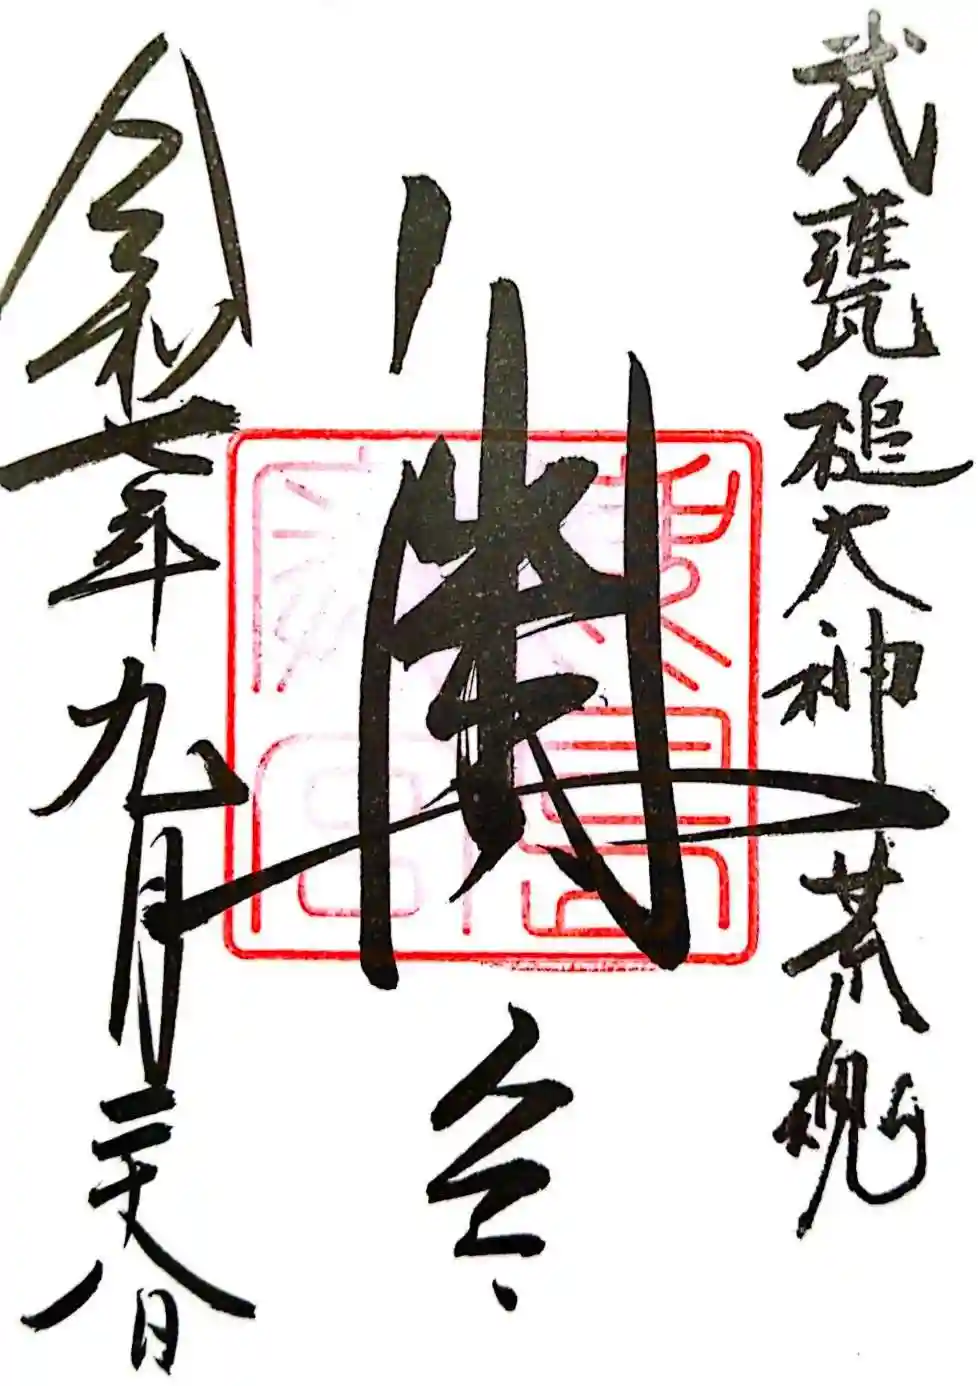 武甕槌大神荒魂
奥宮
令和七年九月二十八日
鹿島
奥宮